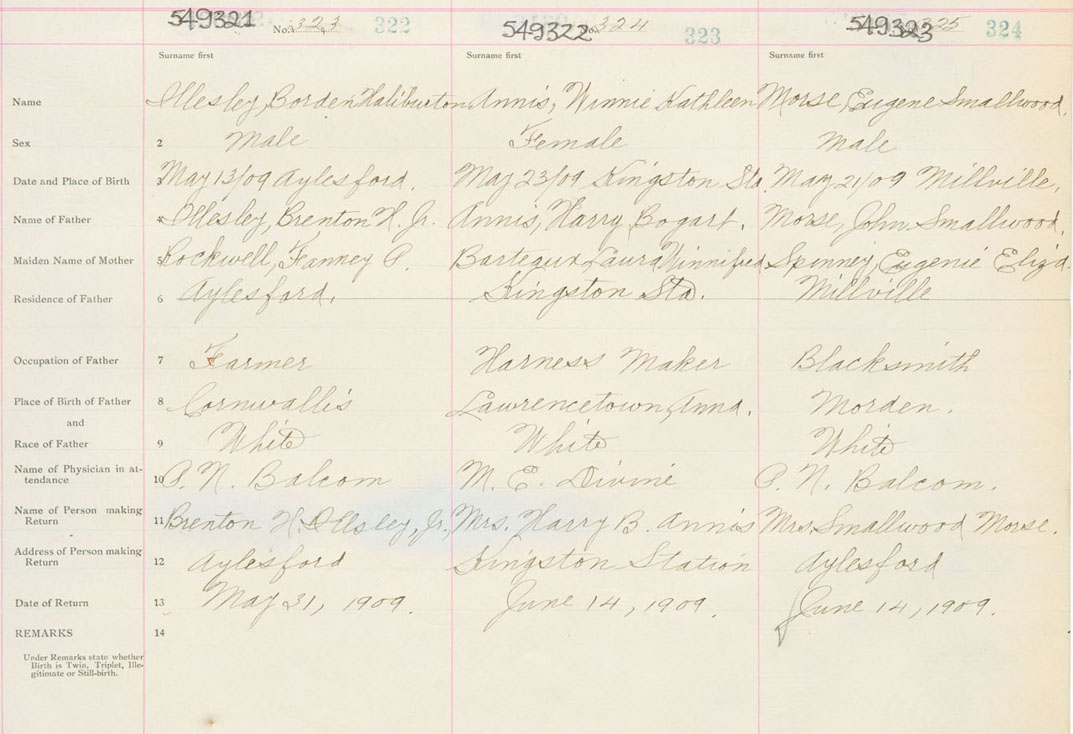 549321 No. 323 322 549322 No. 324 323 549323 325 324
Surname first Surname first Surname first
Name Illesley, Borden Haliburton Annis, Winnie Kathleen Morse, Eugene Smallwood.
Sex 2 Male Female Male
Date and Place of Birth 3 May 13/09 Aylesford. May 23/09 Kingston Sta. May 21/09 Millville.
Name of Father 4 Illesley, Brenton H. Jr. Annis, Harry Bogart. Morse, John Smallwood.
Maiden Name of Mother 5 Rockwell, Fanney P. Barteaux Laura Winnifred Spinney, Eugenie Eliza.
Residence of Father 6 Aylesford. Kingston Sta. Millville
Occupation of Father 7 Farmer Harness Maker Blacksmith
Place of Birth of Father 8 Cornwallis Lawrencetown, Anna. Morden.
and
Race of Father 9 White White White
Name of Physician in at-
tendance 10 P. N. Balcom M. E. Divine P. N. Balcom.
Name of Person making
Return 11 Brenton H. Illsley, Jr. Mrs. Harry B. Annis Mrs. Smallwood Morse.
Address of Person making
Return 12 Aylesford Kingston Station Aylesford
Date of Return 13 May 31, 1909. June 14, 1909. June 14, 1909.
REMARKS 14
Under Remarks state whether
Birth is Twin, Triplet, Ille-
gitimate or Still-birth.